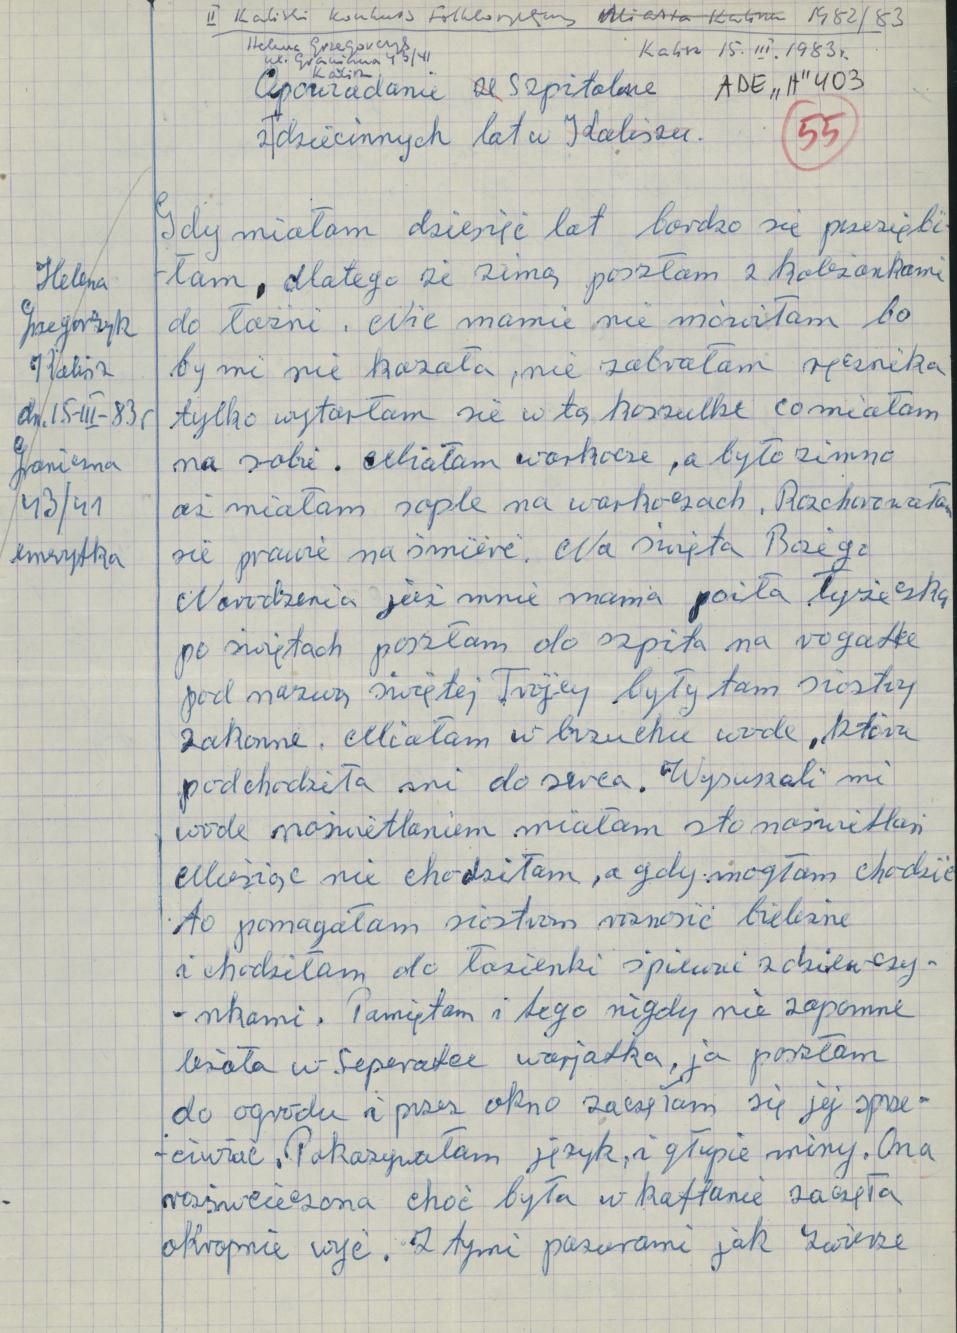 II Kaliski Konkurs Folklorystyczny Miasta Kalisza 1982/83
Helena Grzegorczyk
ul. Graniczna 43/41
Kalisz
Kalisz 15. III. 1983r.
Opowiadanie ze Szpitalne ADE „A" 403
z dziecinnych lat w Kaliszu. 55
Helena
Grzegorzyk
Kalisz
dn. 15-III-83r
Graniczna
43/41
emerytka
Gdy miałam dziesięć lat bardzo się przeziębi-
-łam, dlatego że zimą poszłam z koleżankami
do łaźni. Nic mamie nie mówiłam bo
by mi nie kazała, nie zabrałam ręcznika
tylko wytarłam się w tą koszulkę co miałam
na sobie. Miałam warkocze, a było zimno
aż miałam sople na warkoczach. Rozchorowałam
się prawie na śmierć. Na święta Bożego
Narodzenia już mnie mama poiła łyżeczką
po świętach poszłam do szpita na rogatke
pod nazwą świętej Trójcy były tam siostry
zakonne. Miałam w brzuchu wode, która
podchodziła mi do serca. Wysuszali mi
wode naświetlaniem miałam sto naświetlań
Miesiąc nie chodziłam, a gdy mogłam chodzić
to pomagałam siostrom roznosić bielizne
i chodziłam do łazienki śpiewać z dziewczy-
-nkami. Pamiętam i tego nigdy nie zapomne
leżała w Seperatce warjatka, ja poszłam
do ogrodu i przez okno zaczęłam się jej sprze-
-ciwiać. Pokazywałam język, i głupie miny. Ona
rozwścieczona choć była w kaftanie zaczęła
okropnie wyć. Z tymi pazurami jak zwierze